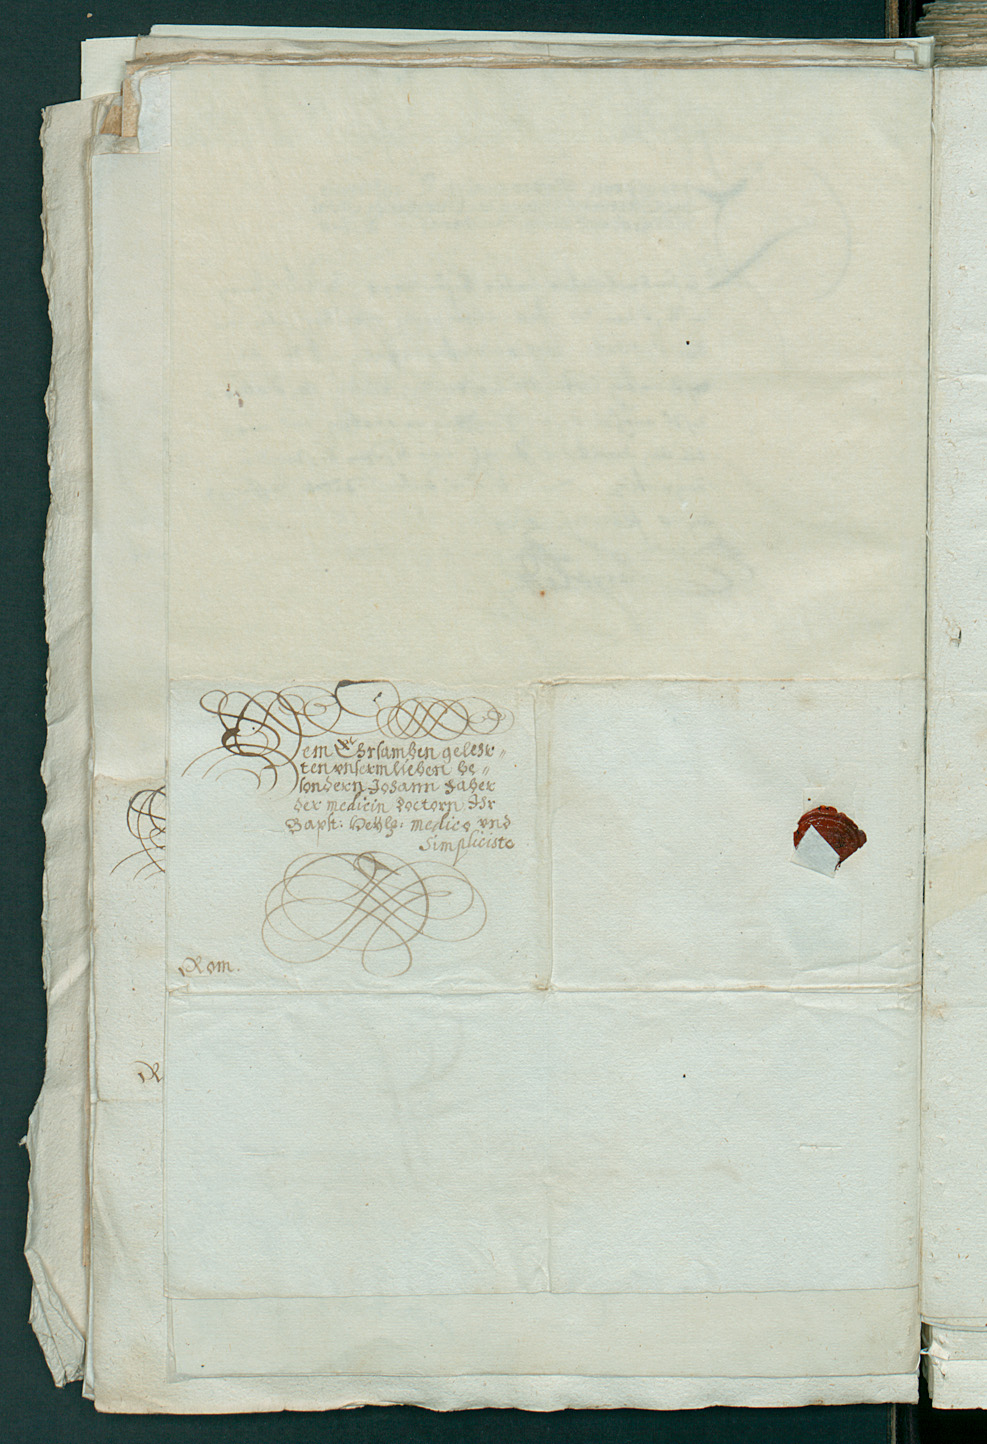 Dem Ehrsamben gelehr-
ten vnserm lieben be-
sondern Johann Faber
der medicin Doctorn Ihr
Bapst: Heylg: medico vnd
Simplicista
Rom.